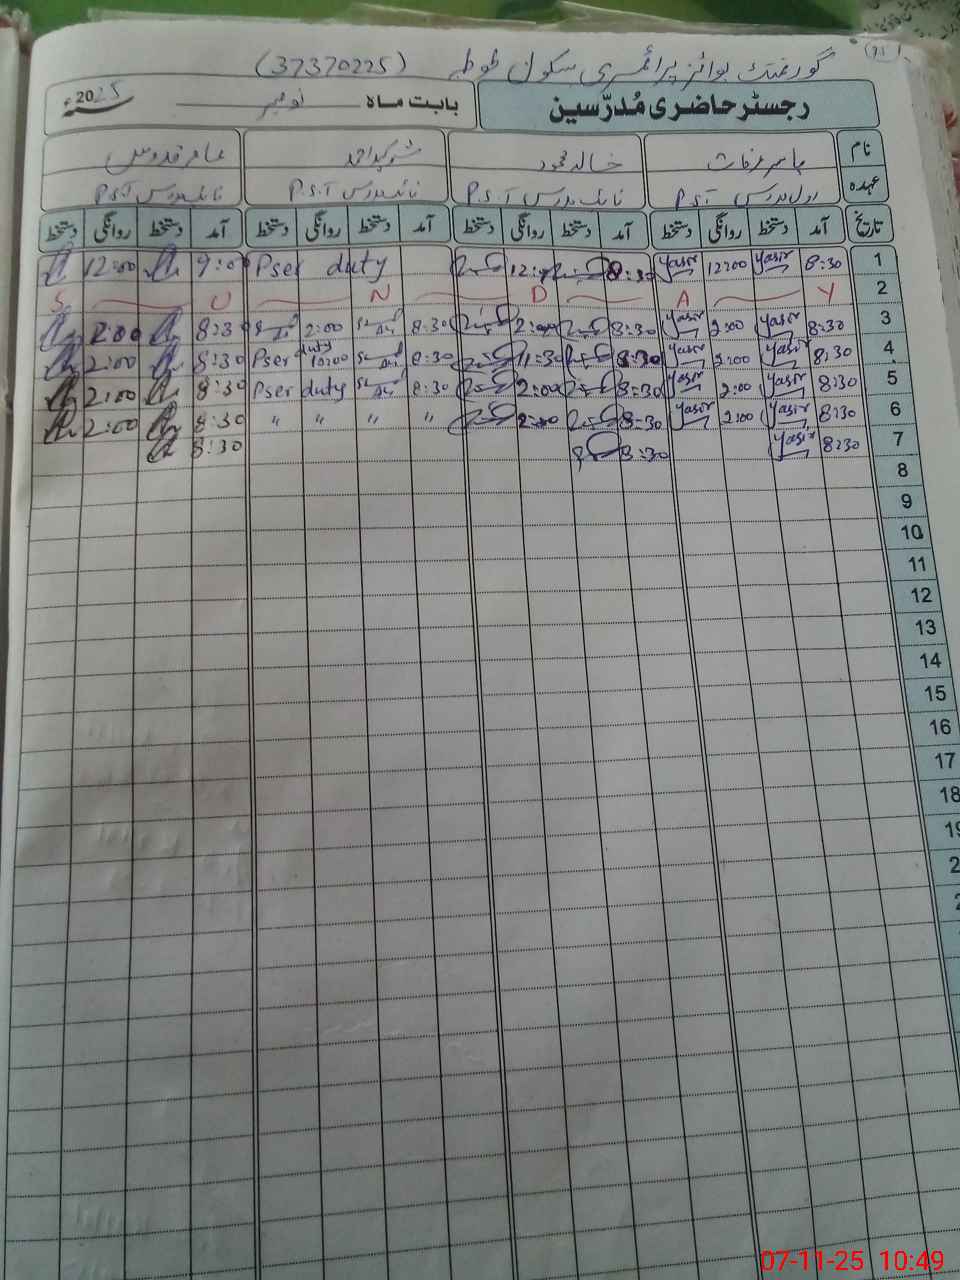 گورنمنٹ بوائز پرائمری سکول طوطہ (37370225)
رجسٹر حاضری مُدرّسین بابت ماہ نومبر سنہ 2025ء
نام یاسر عرفات خالد محمود احمد عامر قدوس
عہدہ مدرس P.S.T نائب مدرس P.S.T نائب مدرس P.S.T نائب مدرس P.S.T
تاریخ آمد دستخط روانگی دستخط آمد دستخط روانگی دستخط آمد دستخط روانگی دستخط آمد دستخط روانگی دستخط
1 8:30 Yasir 12:00 Yasir 8:30 Pser duty 9:00 12:00
2 S U N D A Y
3 8:30 Yasir 2:00 Yasir 8:30 2:00 8:30 2:00 8:30 2:00
4 8:30 Yasir 2:00 Yasir 8:30 11:30 8:30 Pser duty 10:00 8:30 2:00
5 8:30 Yasir 2:00 Yasir 8:30 2:00 8:30 Pser duty 8:30 2:00
6 8:30 Yasir 2:00 Yasir 8:30 2:00 " " " " 8:30 2:00
7 8:30 Yasir 8:30 8:30
8
9
10
11
12
13
14
15
16
17
18
19
07-11-25 10:49